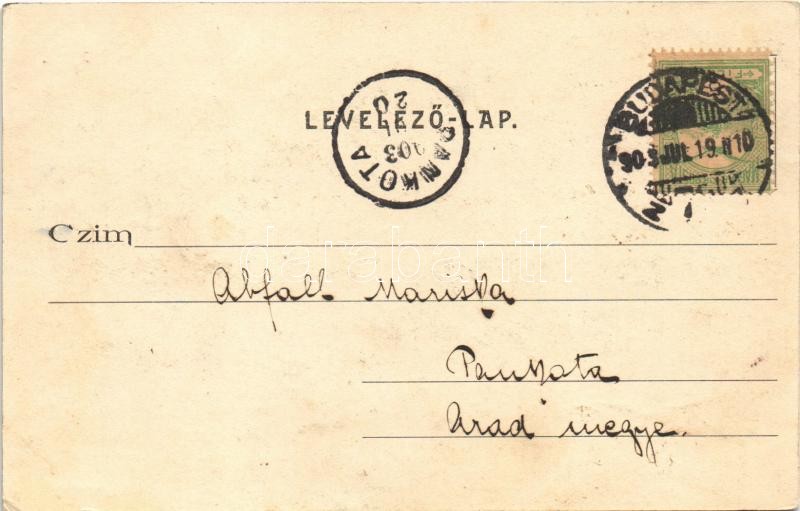 LEVELEZŐ-LAP.
PANKOTA
903
20
BUDAPEST
903 JUL 19 N10
Czim
darabanth
Abfall Mariska
Pankota
Arad megye.